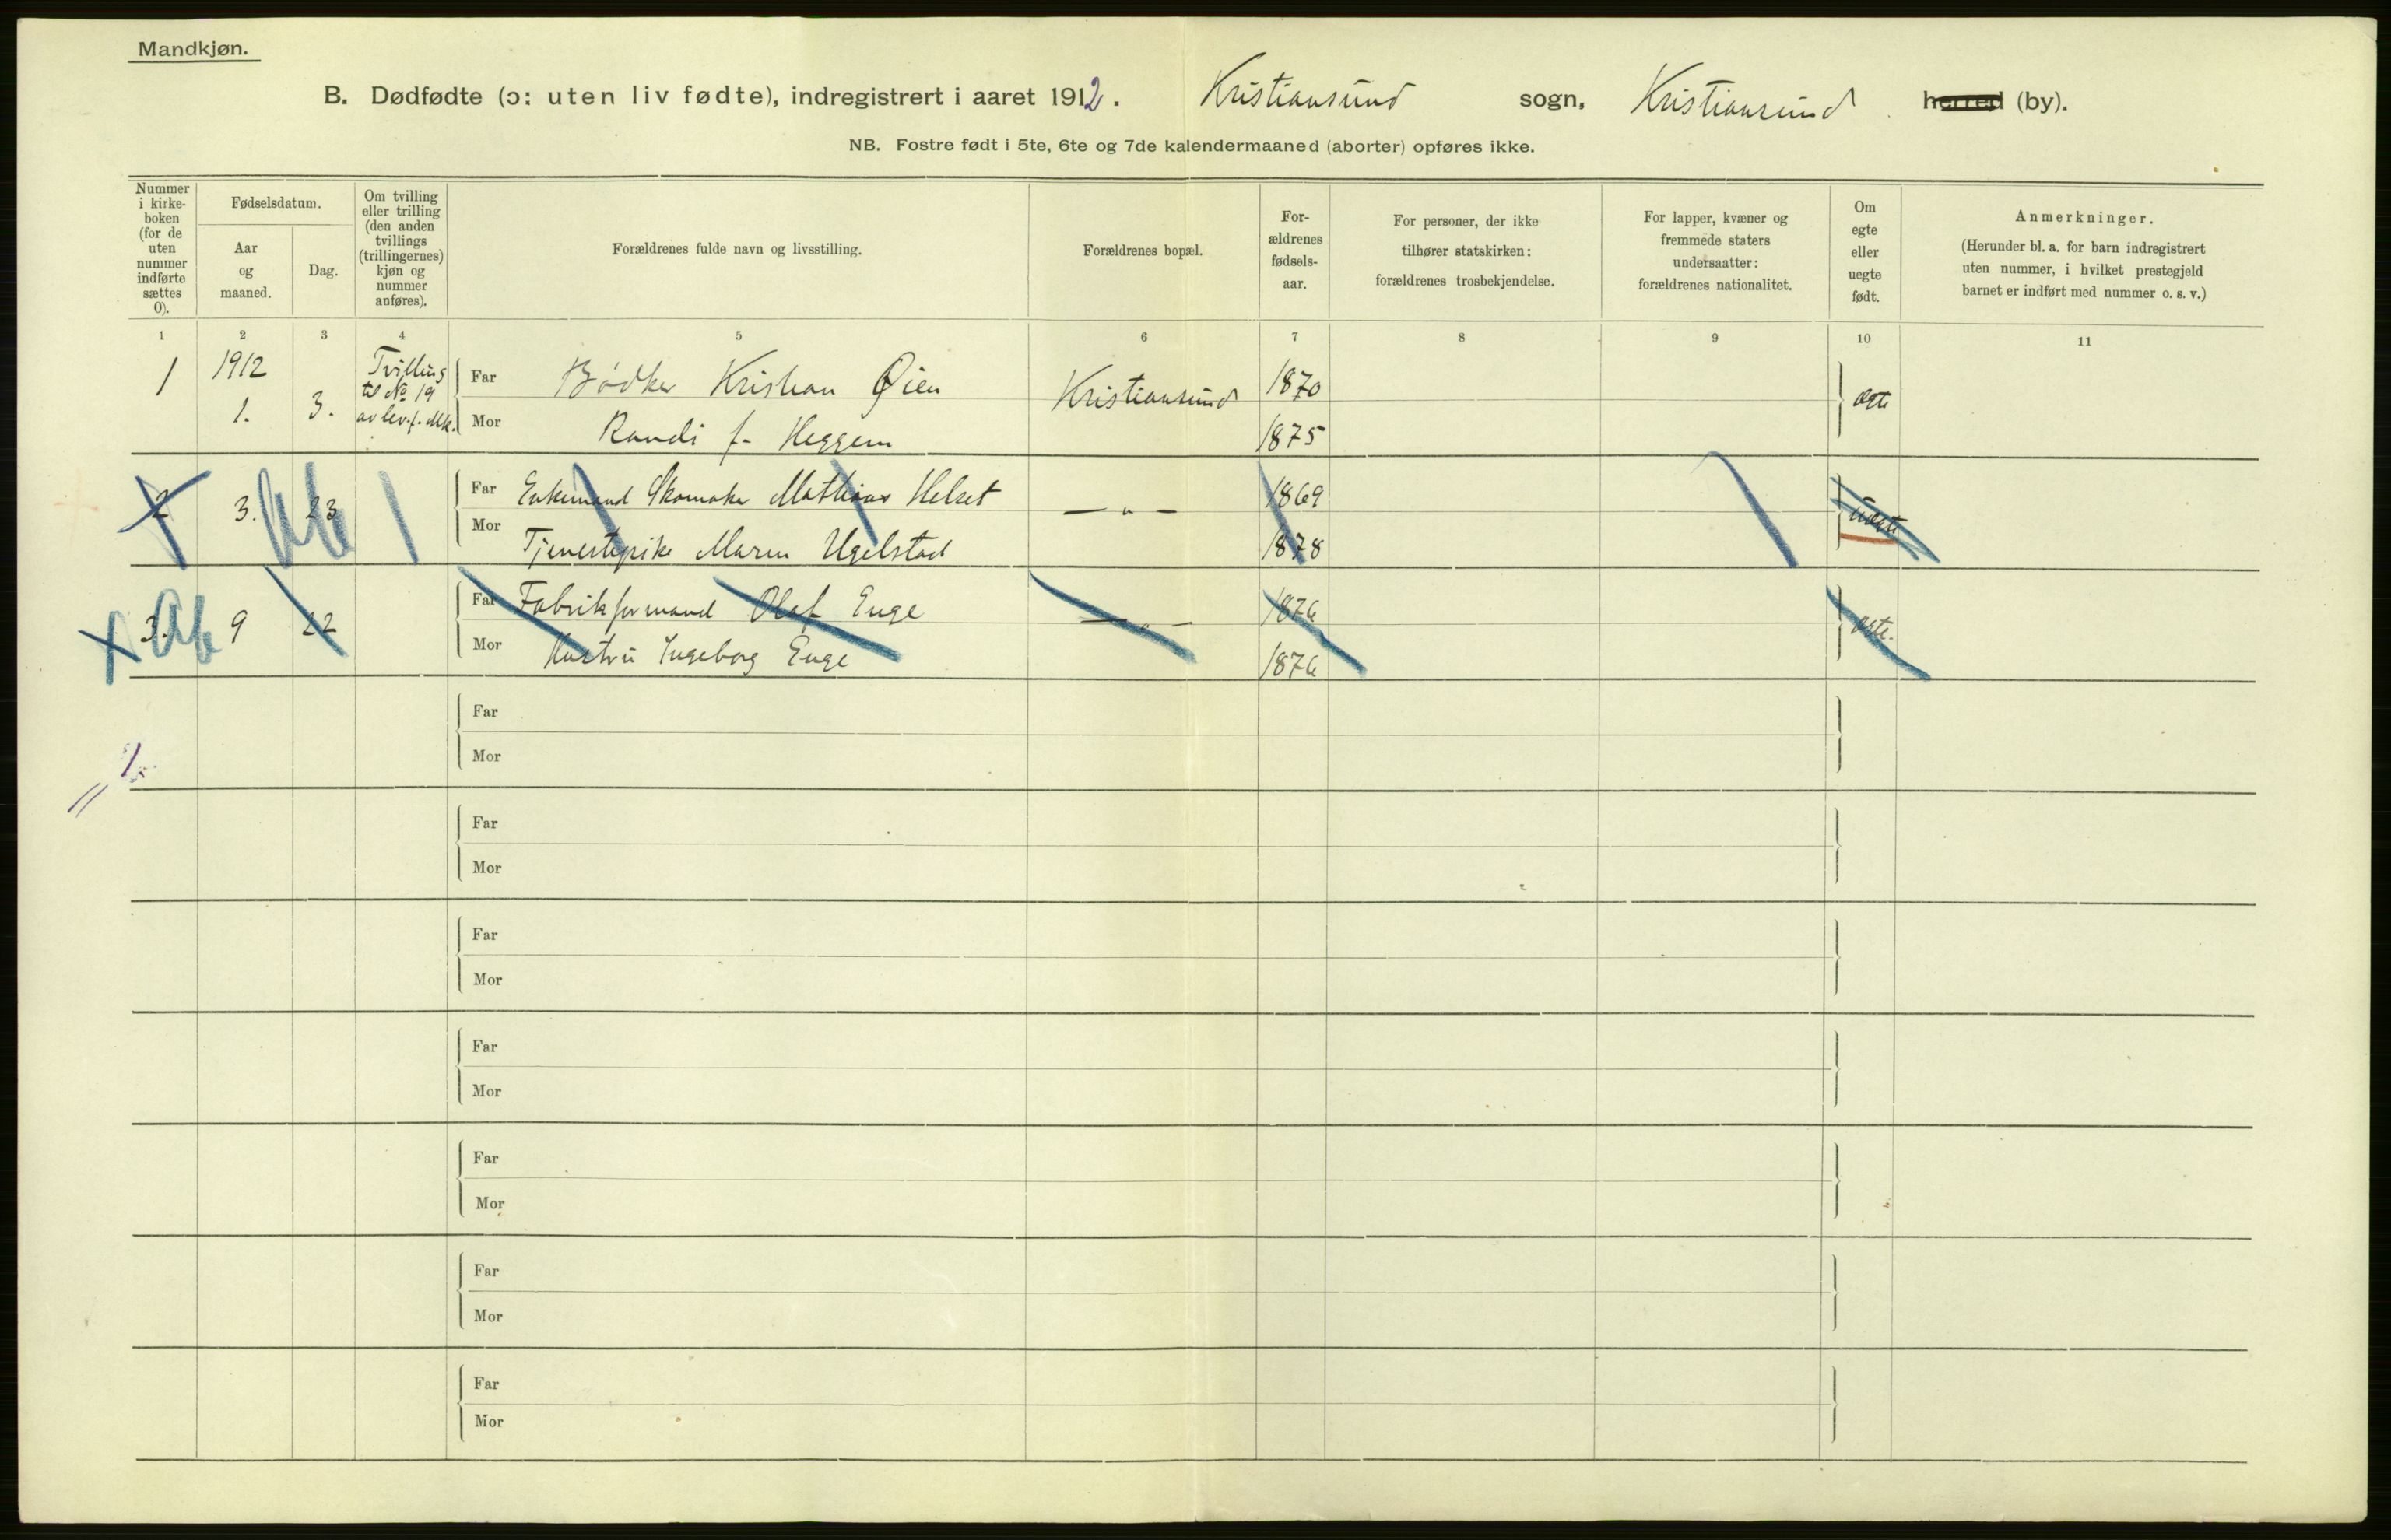 Mandkjøn.
B. Dødfødte (ɔ: uten liv fødte), indregistrert i aaret 1912. Kristiansund sogn, Kristiansund herred (by).
NB. Fostre født i 5te, 6te og 7de kalendermaaned (aborter) opføres ikke.
Nummer
i kirke-
boken
(for de
uten
nummer
indførte
sættes
0).
Fødselsdatum.
Aar
og
maaned.
Dag.
Om tvilling
eller trilling
(den anden
tvillings
(trillingernes)
kjøn og
nummer
anføres).
Forældrenes fulde navn og livsstilling.
Forældrenes bopæl.
For-
ældrenes
fødsels-
aar.
For personer, der ikke
tilhører statskirken:
forældrenes trosbekjendelse.
For lapper, kvæner og
fremmede staters
undersaatter:
forældrenes nationalitet.
Om
egte
eller
uegte
født.
Anmerkninger.
(Herunder bl. a. for barn indregistrert
uten nummer, i hvilket prestegjeld
barnet er indført med nummer o. s. v.)
1 2 3 4 5 6 7 8 9 10 11
1 1912
1. 3.
Tvilling
til No 19
av lev. f. Mk.
Far Bødker Kristian Øien Kristiansund 1870 ægte
Mor Randi f. Heggem 1875
2 3. 23
Far Enkemand Skomaker Mathias Helset — " — 1869 uægte
Mor Tjenestepike Maren Ugelstad 1878
3. 9 22
Far Fabrikformand Olaf Enge — " — 1876 ægte.
Mor Hustru Ingeborg Enge 1876
Far
Mor
Far
Mor
Far
Mor
Far
Mor
Far
Mor
Far
Mor
Far
Mor